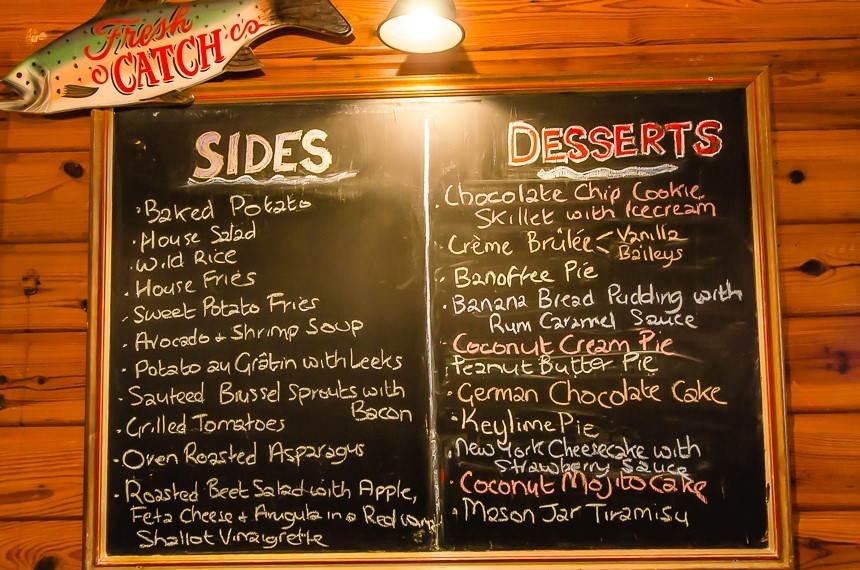 Fresh
CATCH
SIDES
· Baked Potato
· House Salad
· Wild Rice
· House Fries
· Sweet Potato Fries
· Avocado + Shrimp Soup
· Potato au Grâtin with Leeks
· Sauteed Brussel Sprouts with
Bacon
· Grilled Tomatoes
· Oven Roasted Asparagus
· Roasted Beet Salad with Apple,
Feta Cheese + Arugula in a Red
Shallot Vinaigrette
DESSERTS
· Chocolate Chip Cookie
Skillet with Icecream
· Crème Brûlée < Vanilla
Baileys
· Banoffee Pie
· Banana Bread Pudding with
Rum Caramel Sauce
· Coconut Cream Pie
· Peanut Butter Pie
· German Chocolate Cake
· Keylime Pie
· New York Cheesecake with
Strawberry Sauce
· Coconut Mojito Cake
· Mason Jar Tiramisu